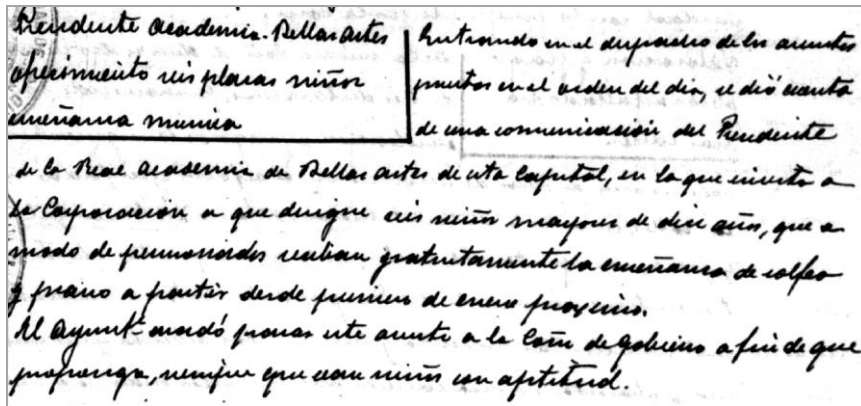 Presidente Academia-Bellas Artes
ofrecimiento seis plazas niños
enseñanza musica
Entrando en el despacho de los asuntos
puestos en el orden del dia, se dió cuenta
de una comunicación del Presidente
de la Real Academia de Bellas Artes de esta Capital, en la que invita a
la Corporación a que designe seis niños mayores de diez años, que a
modo de pensionados reciban gratuitamente la enseñanza de solfeo
y piano a partir desde primero de enero proximo.
El Ayuntº acordó pasar este asunto a la Comn de Gobierno a fin de que
proponga, siempre que sean niños con aptitud.